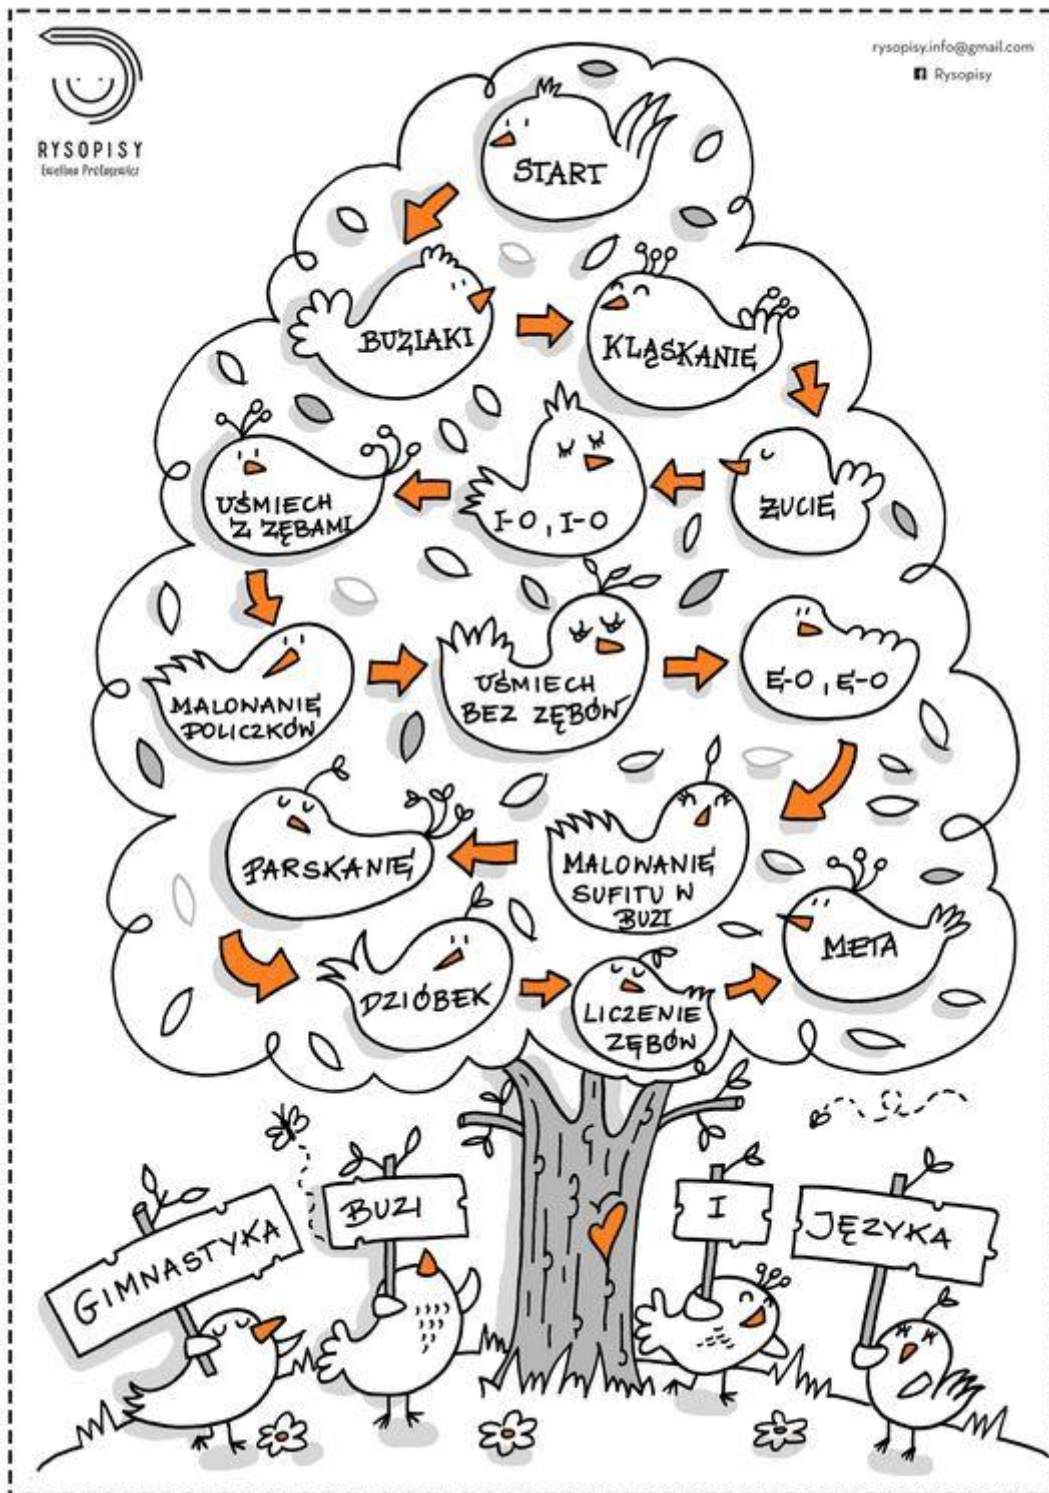 RYSOPISY
Ewelina Protasewicz
rysopisy.info@gmail.com
Rysopisy
START
BUZIAKI
KLĄSKANIE
ŻUCIE
I-O, I-O
UŚMIECH
Z ZĘBAMI
MALOWANIE
POLICZKÓW
UŚMIECH
BEZ ZĘBÓW
E-O, E-O
MALOWANIE
SUFITU W
BUZI
PARSKANIE
DZIÓBEK
LICZENIE
ZĘBÓW
META
GIMNASTYKA
BUZI
I
JĘZYKA